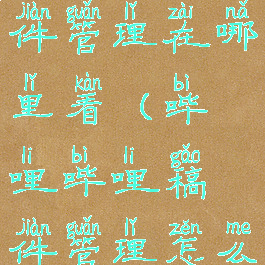 jiàn guǎn lǐ zài nǎ
件管理在哪
lǐ kàn bì
里看(哔
lī bì lī gǎo
哩哔哩稿
jiàn guǎn lǐ zěn me
件管理怎么